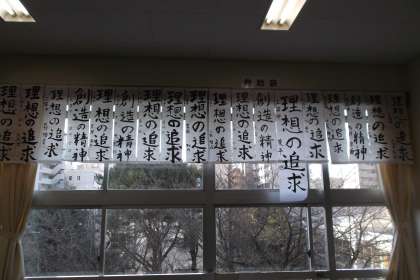 理想の追求
理想の追求
創造の精神
理想の追求
理想の追求
理想の追求
創造の精神
創造の精神
理想の追求
理想の追求
理想の追求
理想の追求
創造の精神
理想の追求
創造の精神
理想の追求
理想の追求
理想の追求